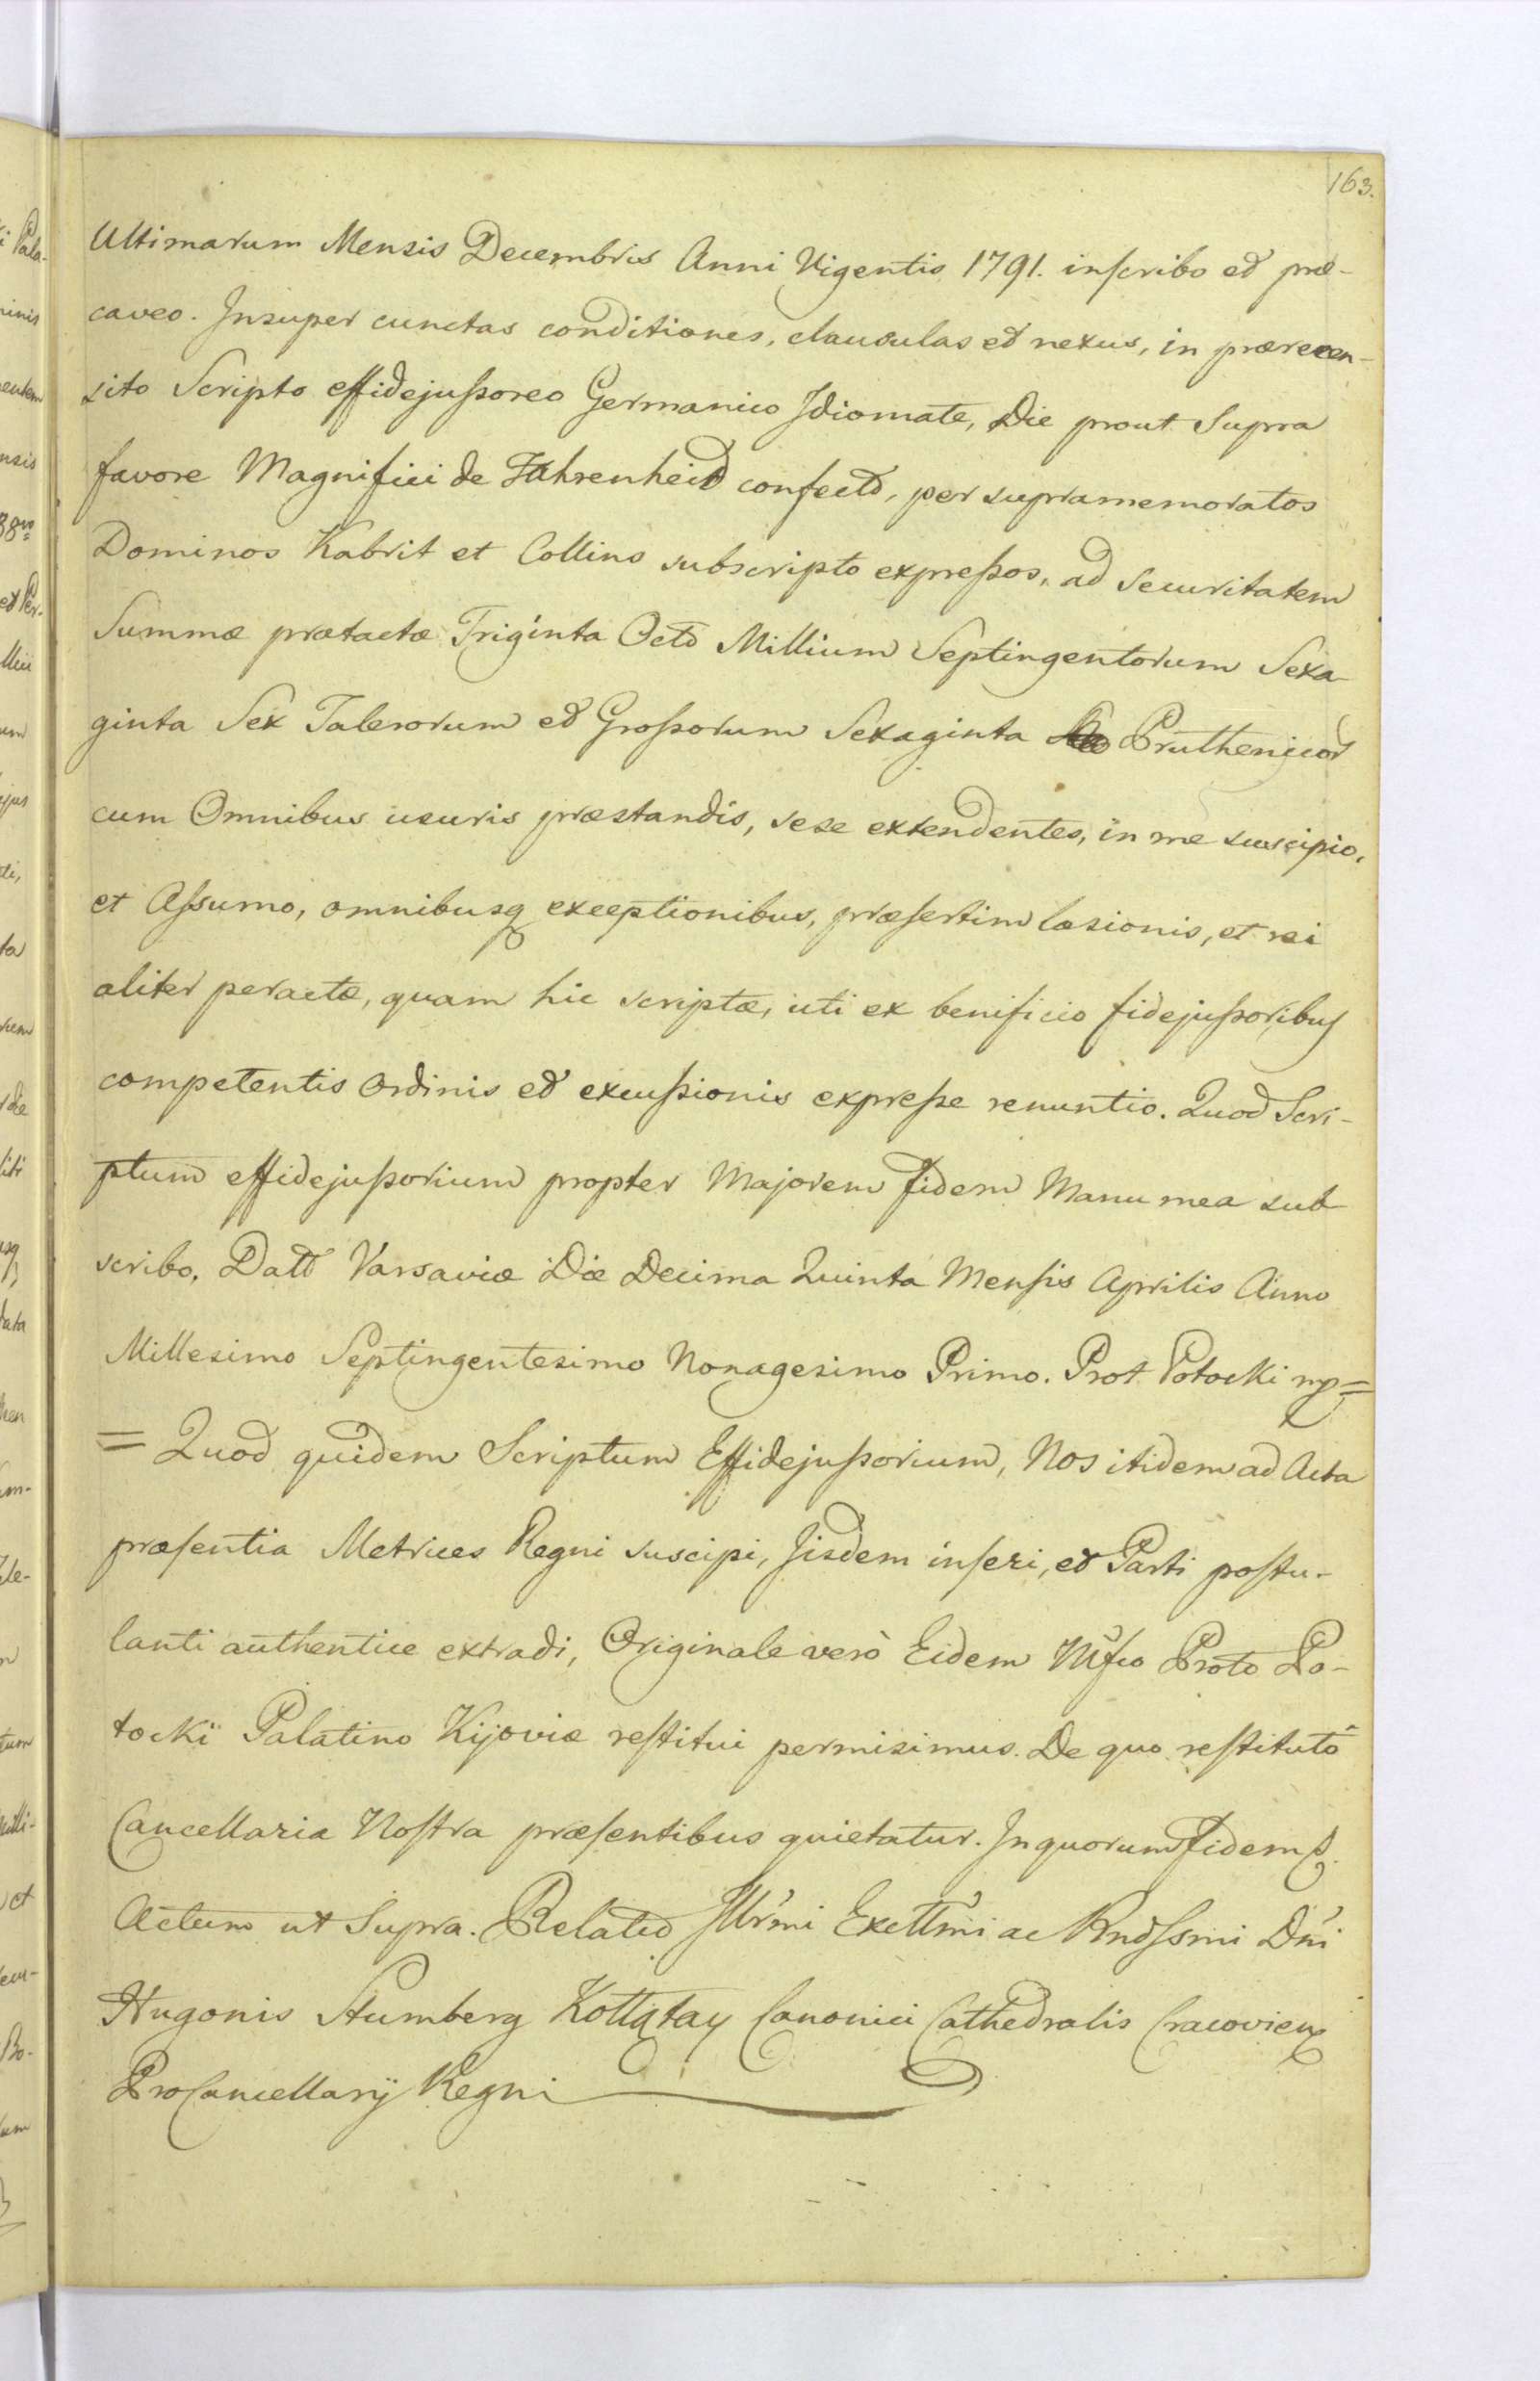 163.
Ultimarum Mensis Decembris Anni Vigentis 1791. inscribo et præ-
caveo. Insuper cunctas conditiones, clausulas et nexus, in prærecen-
sito Scripto effidejussoreo Germanico Idiomate, Die prout Supra
favore Magnifici de Fahrenheid confecto, per supramemoratos
Dominos Kabrit et Collins subscripto expressos, ad Securitatem
Summæ prætactæ Triginta Octo Millium Septingentorum Sexa-
ginta Sex Talerorum et Grossorum Sexaginta Pruthenicor
cum Omnibus usuris præstandis, sese extendentes, in me suscipio,
et Assumo, omnibusq exceptionibus, præsertim læsionis, et rei
aliter peractæ, quam hic scriptæ, uti ex benificio fidejussoribus
competentis Ordinis et excussionis expresse renuntio. Quod Scri-
ptum effidejussorium propter Majorem fidem Manu mea sub
scribo. Datt Varsaviæ Die Decima Quinta Mensis Aprilis Anno
Millesimo Septingentesimo Nonagesimo Primo. Prot Potocki mp=
= Quod quidem Scriptum Effidejussorium, Nos itidem ad Acta
præsentia Metrices Regni suscipi, Iisdem inseri, et Parti postu-
lanti authentice extradi, Originale verò Eidem Mfco Proto Po-
tocki Palatino Kijoviæ restitui permisimus. De quo restitutô
Cancellaria Nostra præsentibus quietatur. In quorum Fidem
Actum ut Supra. Relatio Illrmi Excllmi ac Rndssmi Dni
Hugonis Stumberg Kołłątay Canonici Cathedralis Cracovien
ProCancellarij Regni